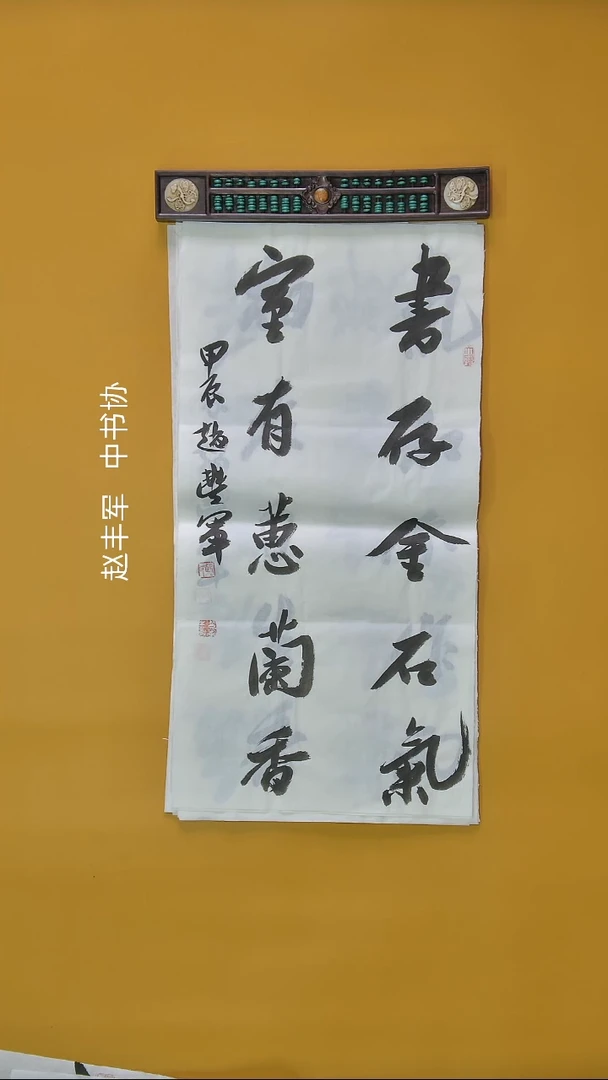 書存金石氣
室有蕙蘭香
甲辰趙豐軍
赵丰军 中书协